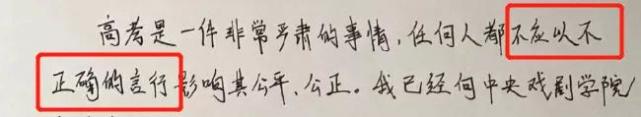 高考是一件非常严肃的事情，任何人都不应以不
正确的言行影响其公平、公正。我已经向中央戏剧学院